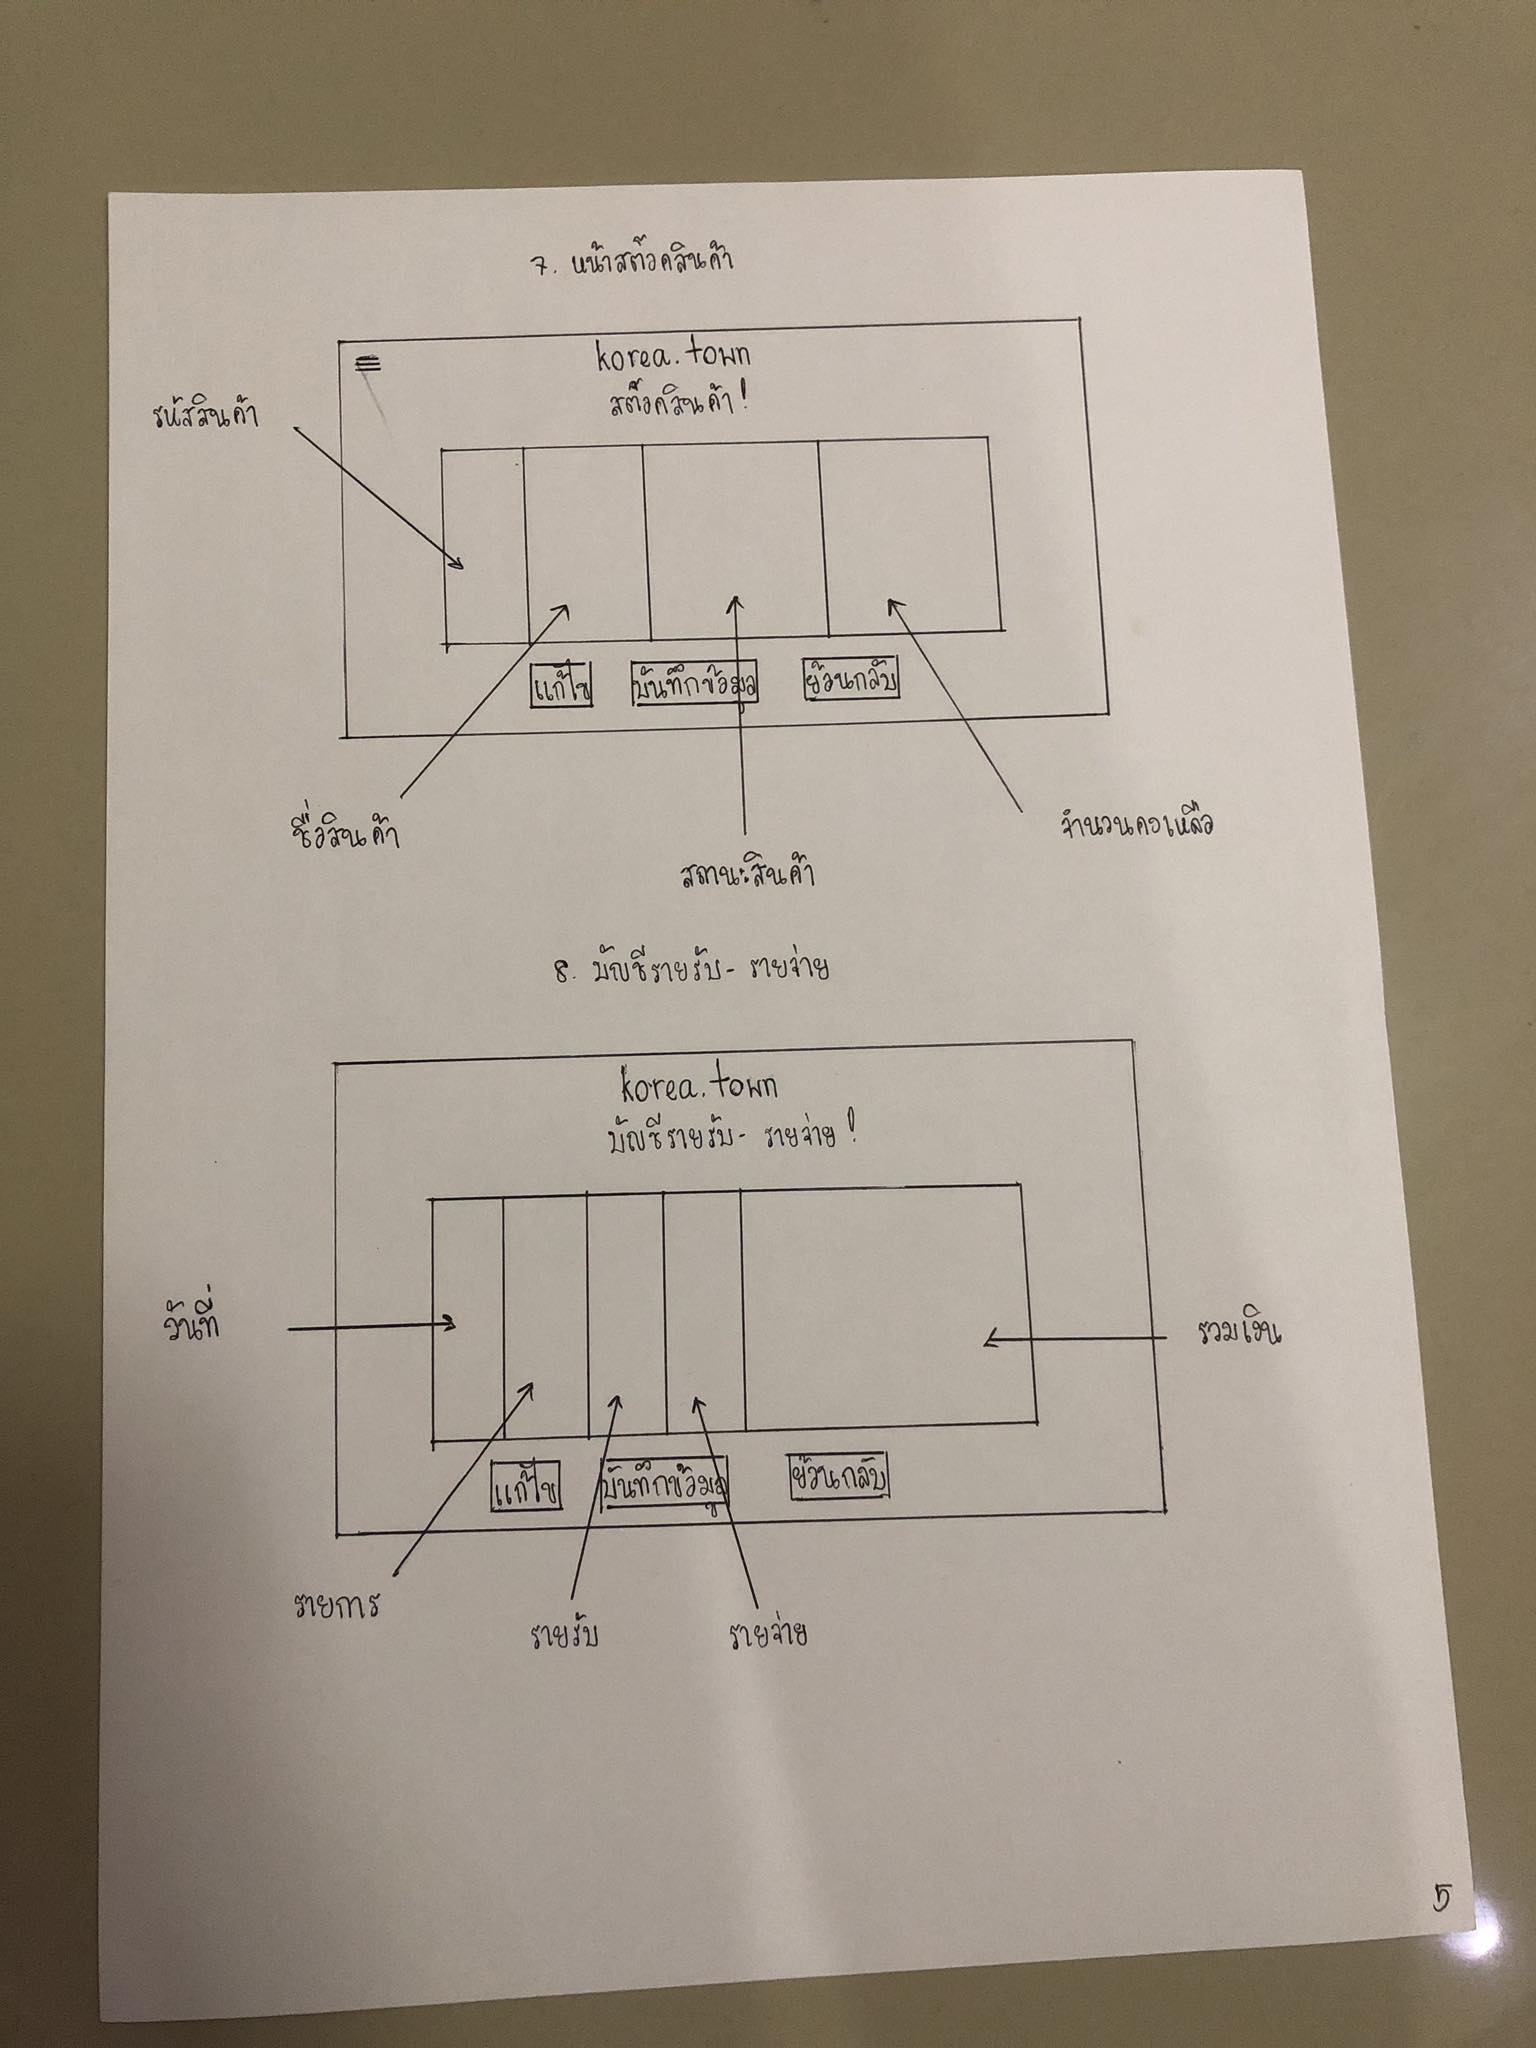 7. หน้าสต๊อคสินค้า
korea.town
สต๊อคสินค้า!
รหัสสินค้า
แก้ไข
บันทึกข้อมูล
ย้อนกลับ
ชื่อสินค้า
สถานะสินค้า
จำนวนคงเหลือ
8. บัญชีรายรับ- รายจ่าย
korea.town
บัญชีรายรับ- รายจ่าย!
วันที่
รวมเงิน
แก้ไข
บันทึกข้อมูล
ย้อนกลับ
รายการ
รายรับ
รายจ่าย
5